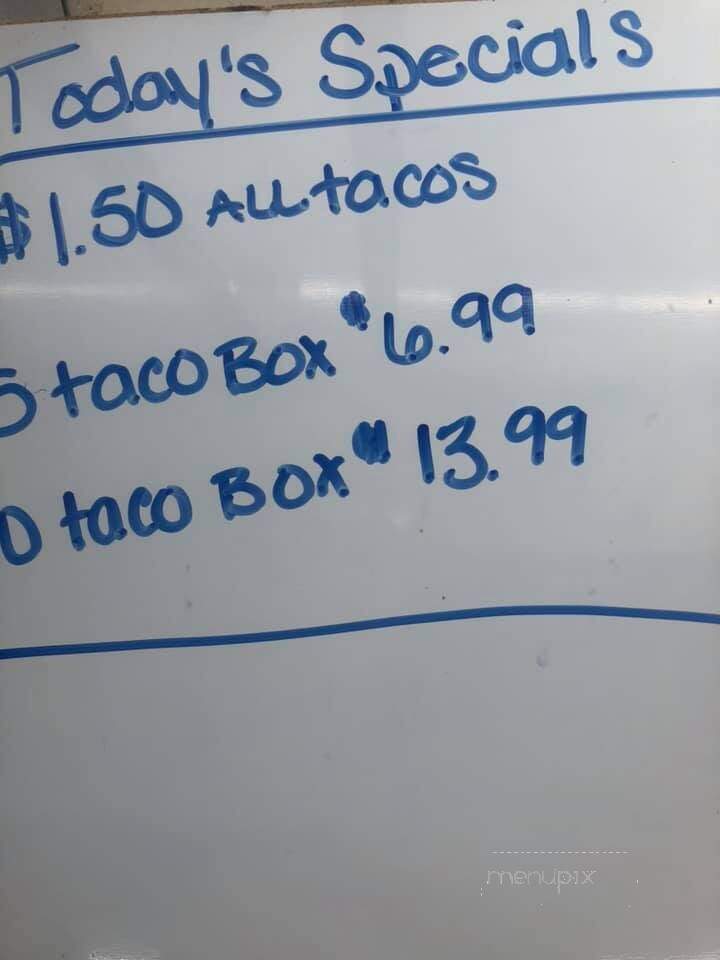 Today's Specials
$1.50 ALL tacos
5 taco Box $6.99
0 taco Box $13.99
menupix